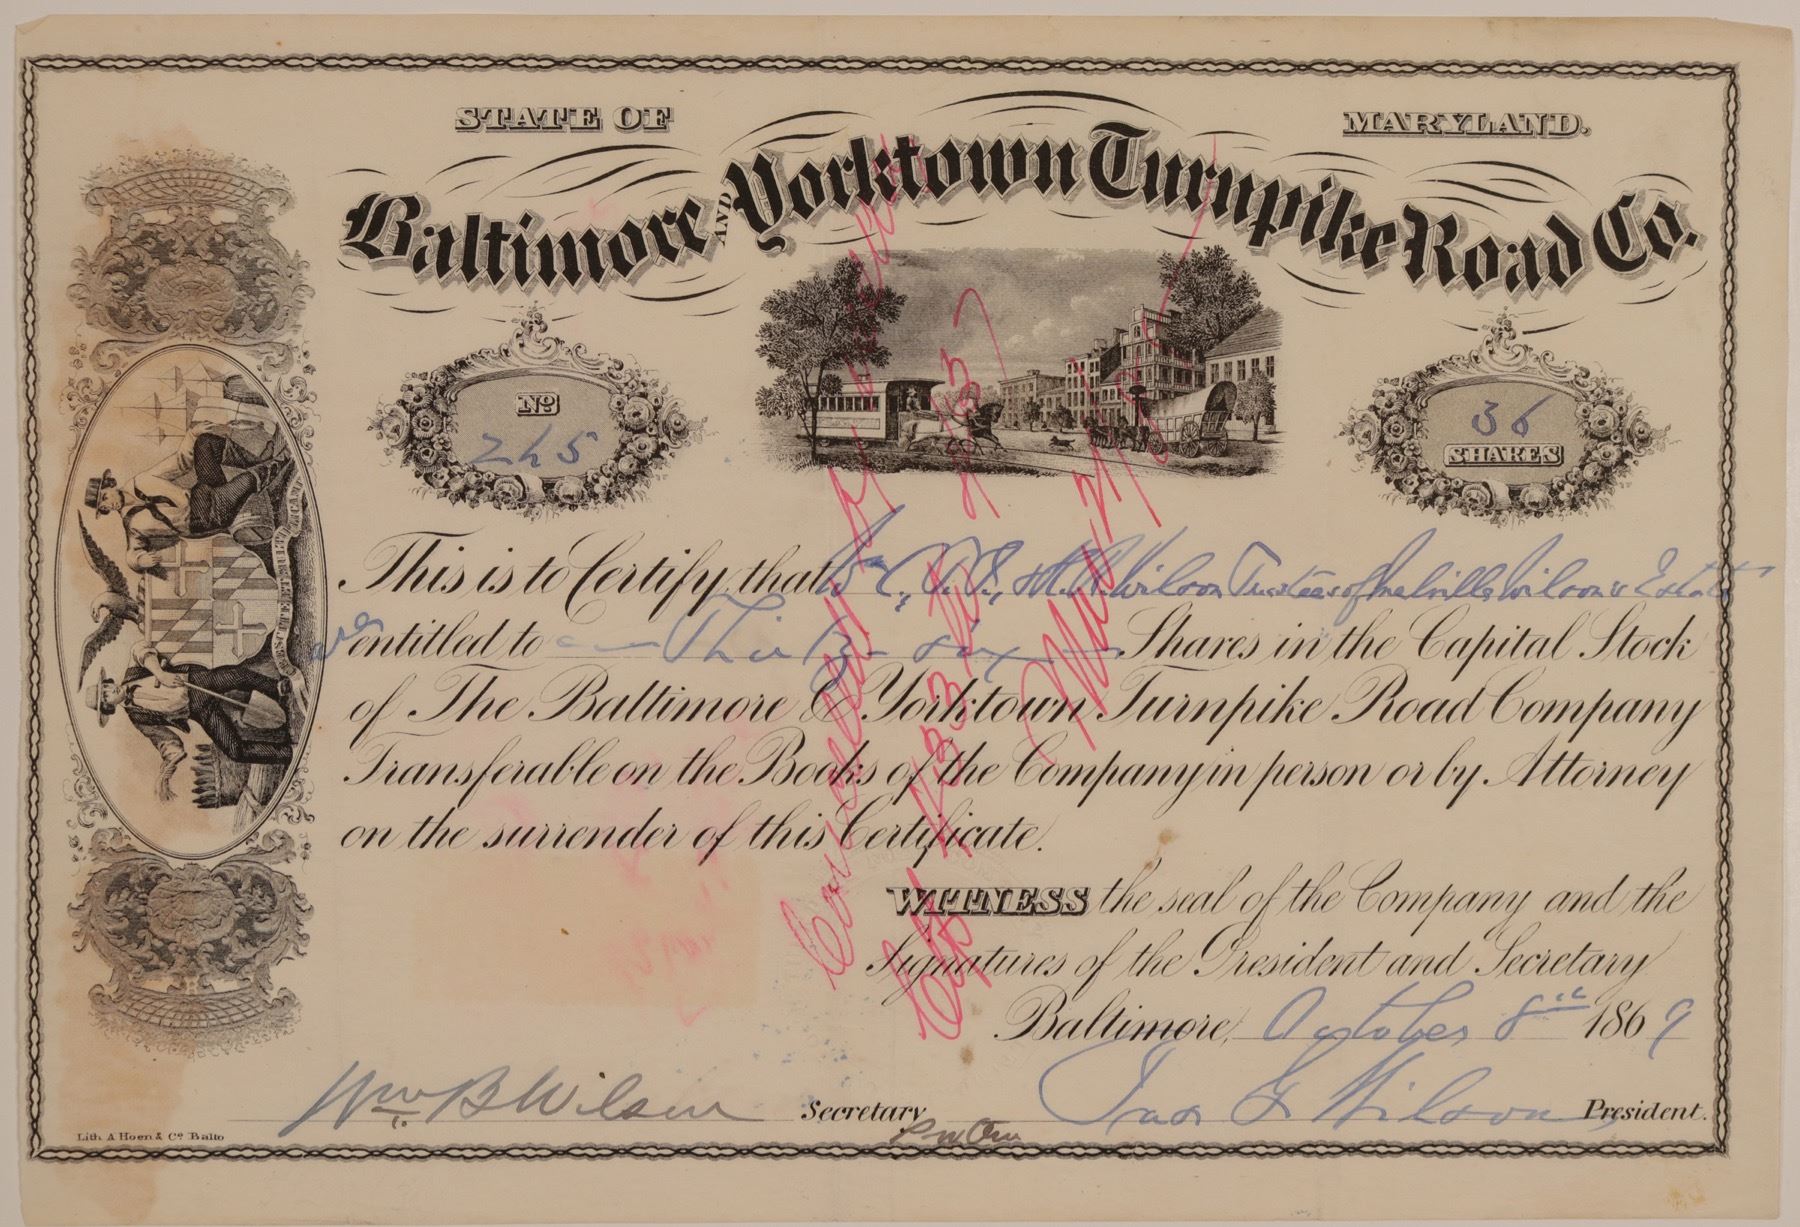 STATE OF MARYLAND.
Baltimore AND Yorktown Turnpike Road Co.
No
265
36
SHARES
This is to Certify that Wm C., & H. R. Wilson Trustees of Melville Wilson's Estate
entitled to Thirty six Shares in the Capital Stock
of The Baltimore & Yorktown Turnpike Road Company
Transferable on the Books of the Company in person or by Attorney
on the surrender of this Certificate.
WITNESS the seal of the Company and the
Signatures of the President and Secretary
Baltimore, October 8th 1869
Wm. B Wilson Secretary
Wilson President.
Lith. A Hoen & Co. Balto
Cancelled